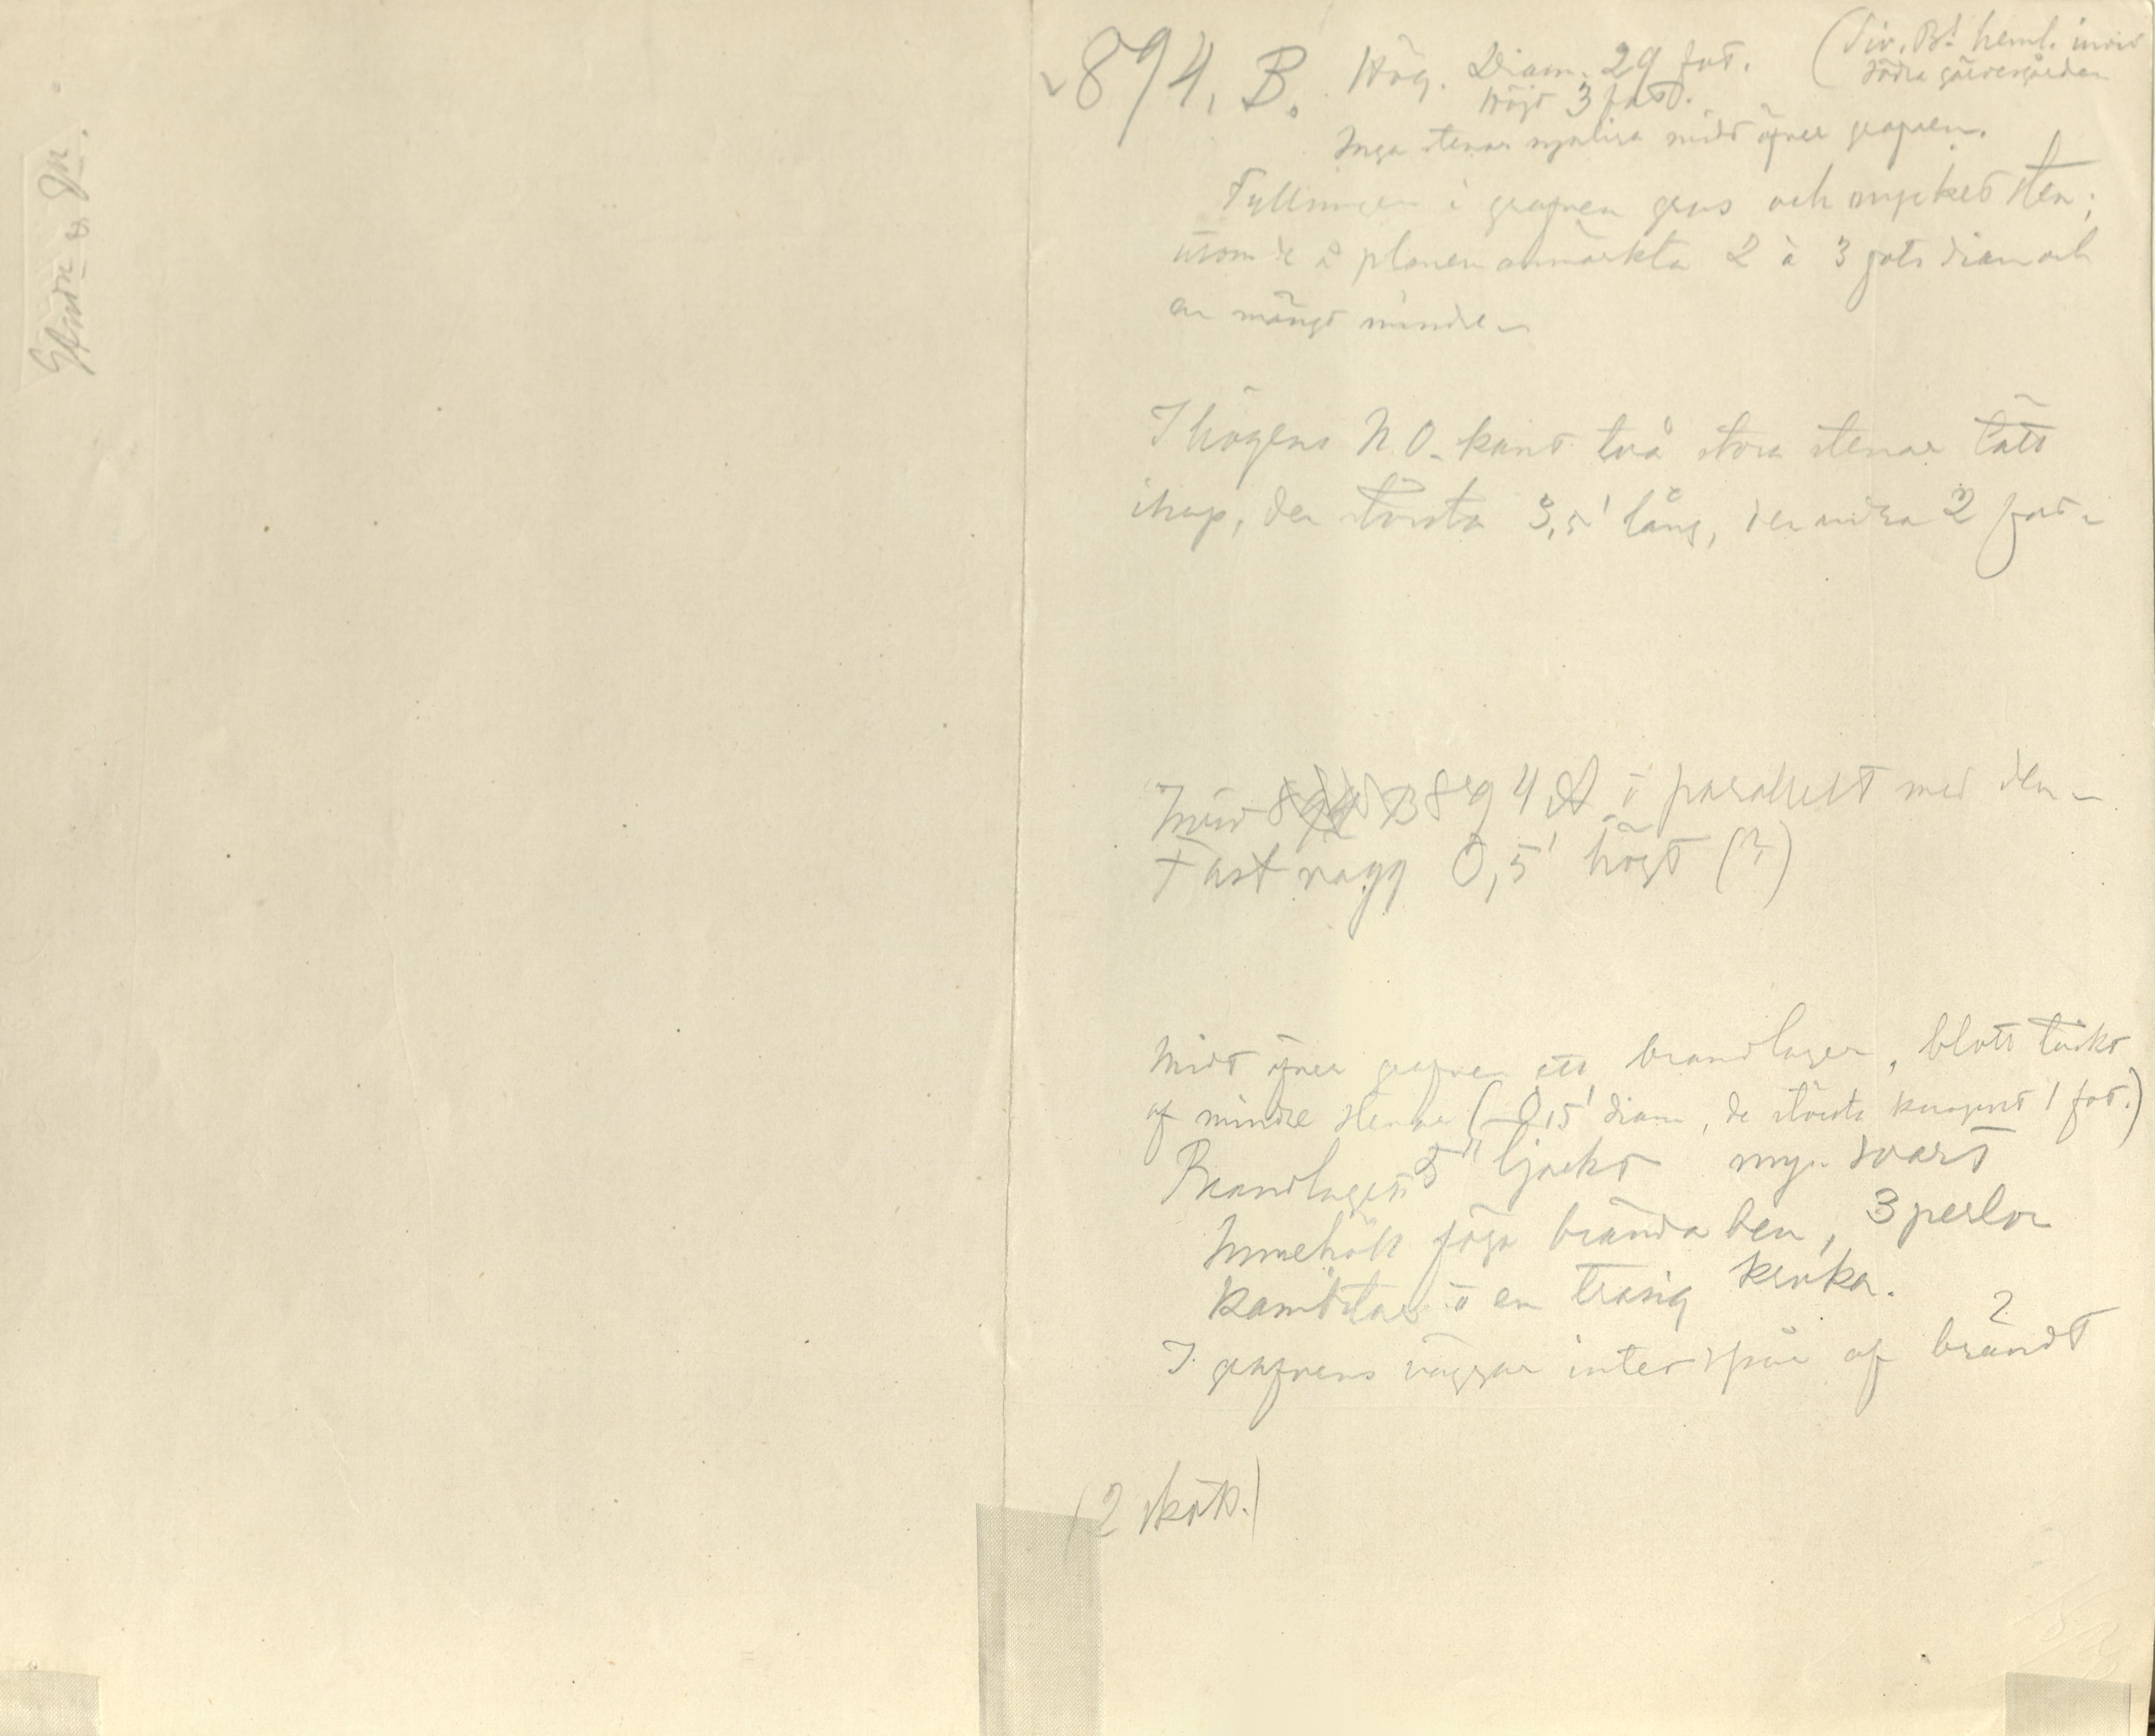 894. B. Hög. Diam. 29 fot.
Höjd 3 fot.
södra gärdesgården
Inga stenar synliga midt öfver grafven.
Fyllningen i grafven grus och mycket sten;
utom de å planen anmärkta 2 à 3 fots diam och
en mängd mindre
I högens N.O. kant två stora stenar tätt
ihop, den största 3,5' lång, den andra 2 fot
Invid 894 B 894 A o parallelt med den
Fast vägg 0,5' högt (?)
Midt öfver grafven ett brandlager, blott täckt
af mindre stenar (0,5' diam, de största knappast 1 fot.)
Brandlagret 5" tjockt myc. svart
Innehöll föga brända ben, 3 perlor
kambitar o en trasig kruka.
I grafvens väggar intet spår af brändt ?
(2 skötb.)